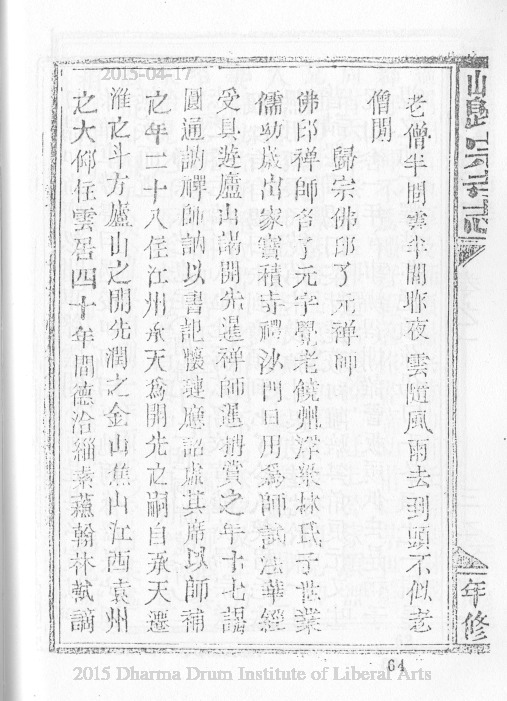 2015-04-17
老僧半間雲半間昨夜雲隨風雨去到頭不似老
僧閒
歸宗佛印了元禪師
佛印禅師名了元字覺老饒州浮梁林氏子世業
儒幼歲出家寶積寺禮沙門日用爲師試法華經
受具遊廬山謁開先暹禅師暹稱賞之年十七謁
圓通訥禪師訥以書記懷璉應詔虛其席以師補
之年二十八住江州承天爲開先之嗣自承天遷
淮之斗方廬山之開先潤之金山焦山江西袁州
之大仰住雲居四十年間德洽緇素蘓翰林軾謫
年修
64
2015 Dharma Drum Institute of Liberal Arts